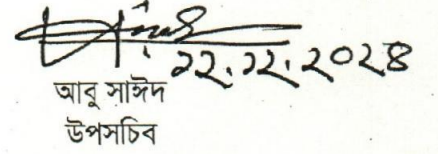 ১২.১২.২০২৪
আবু সাঈদ
উপসচিব